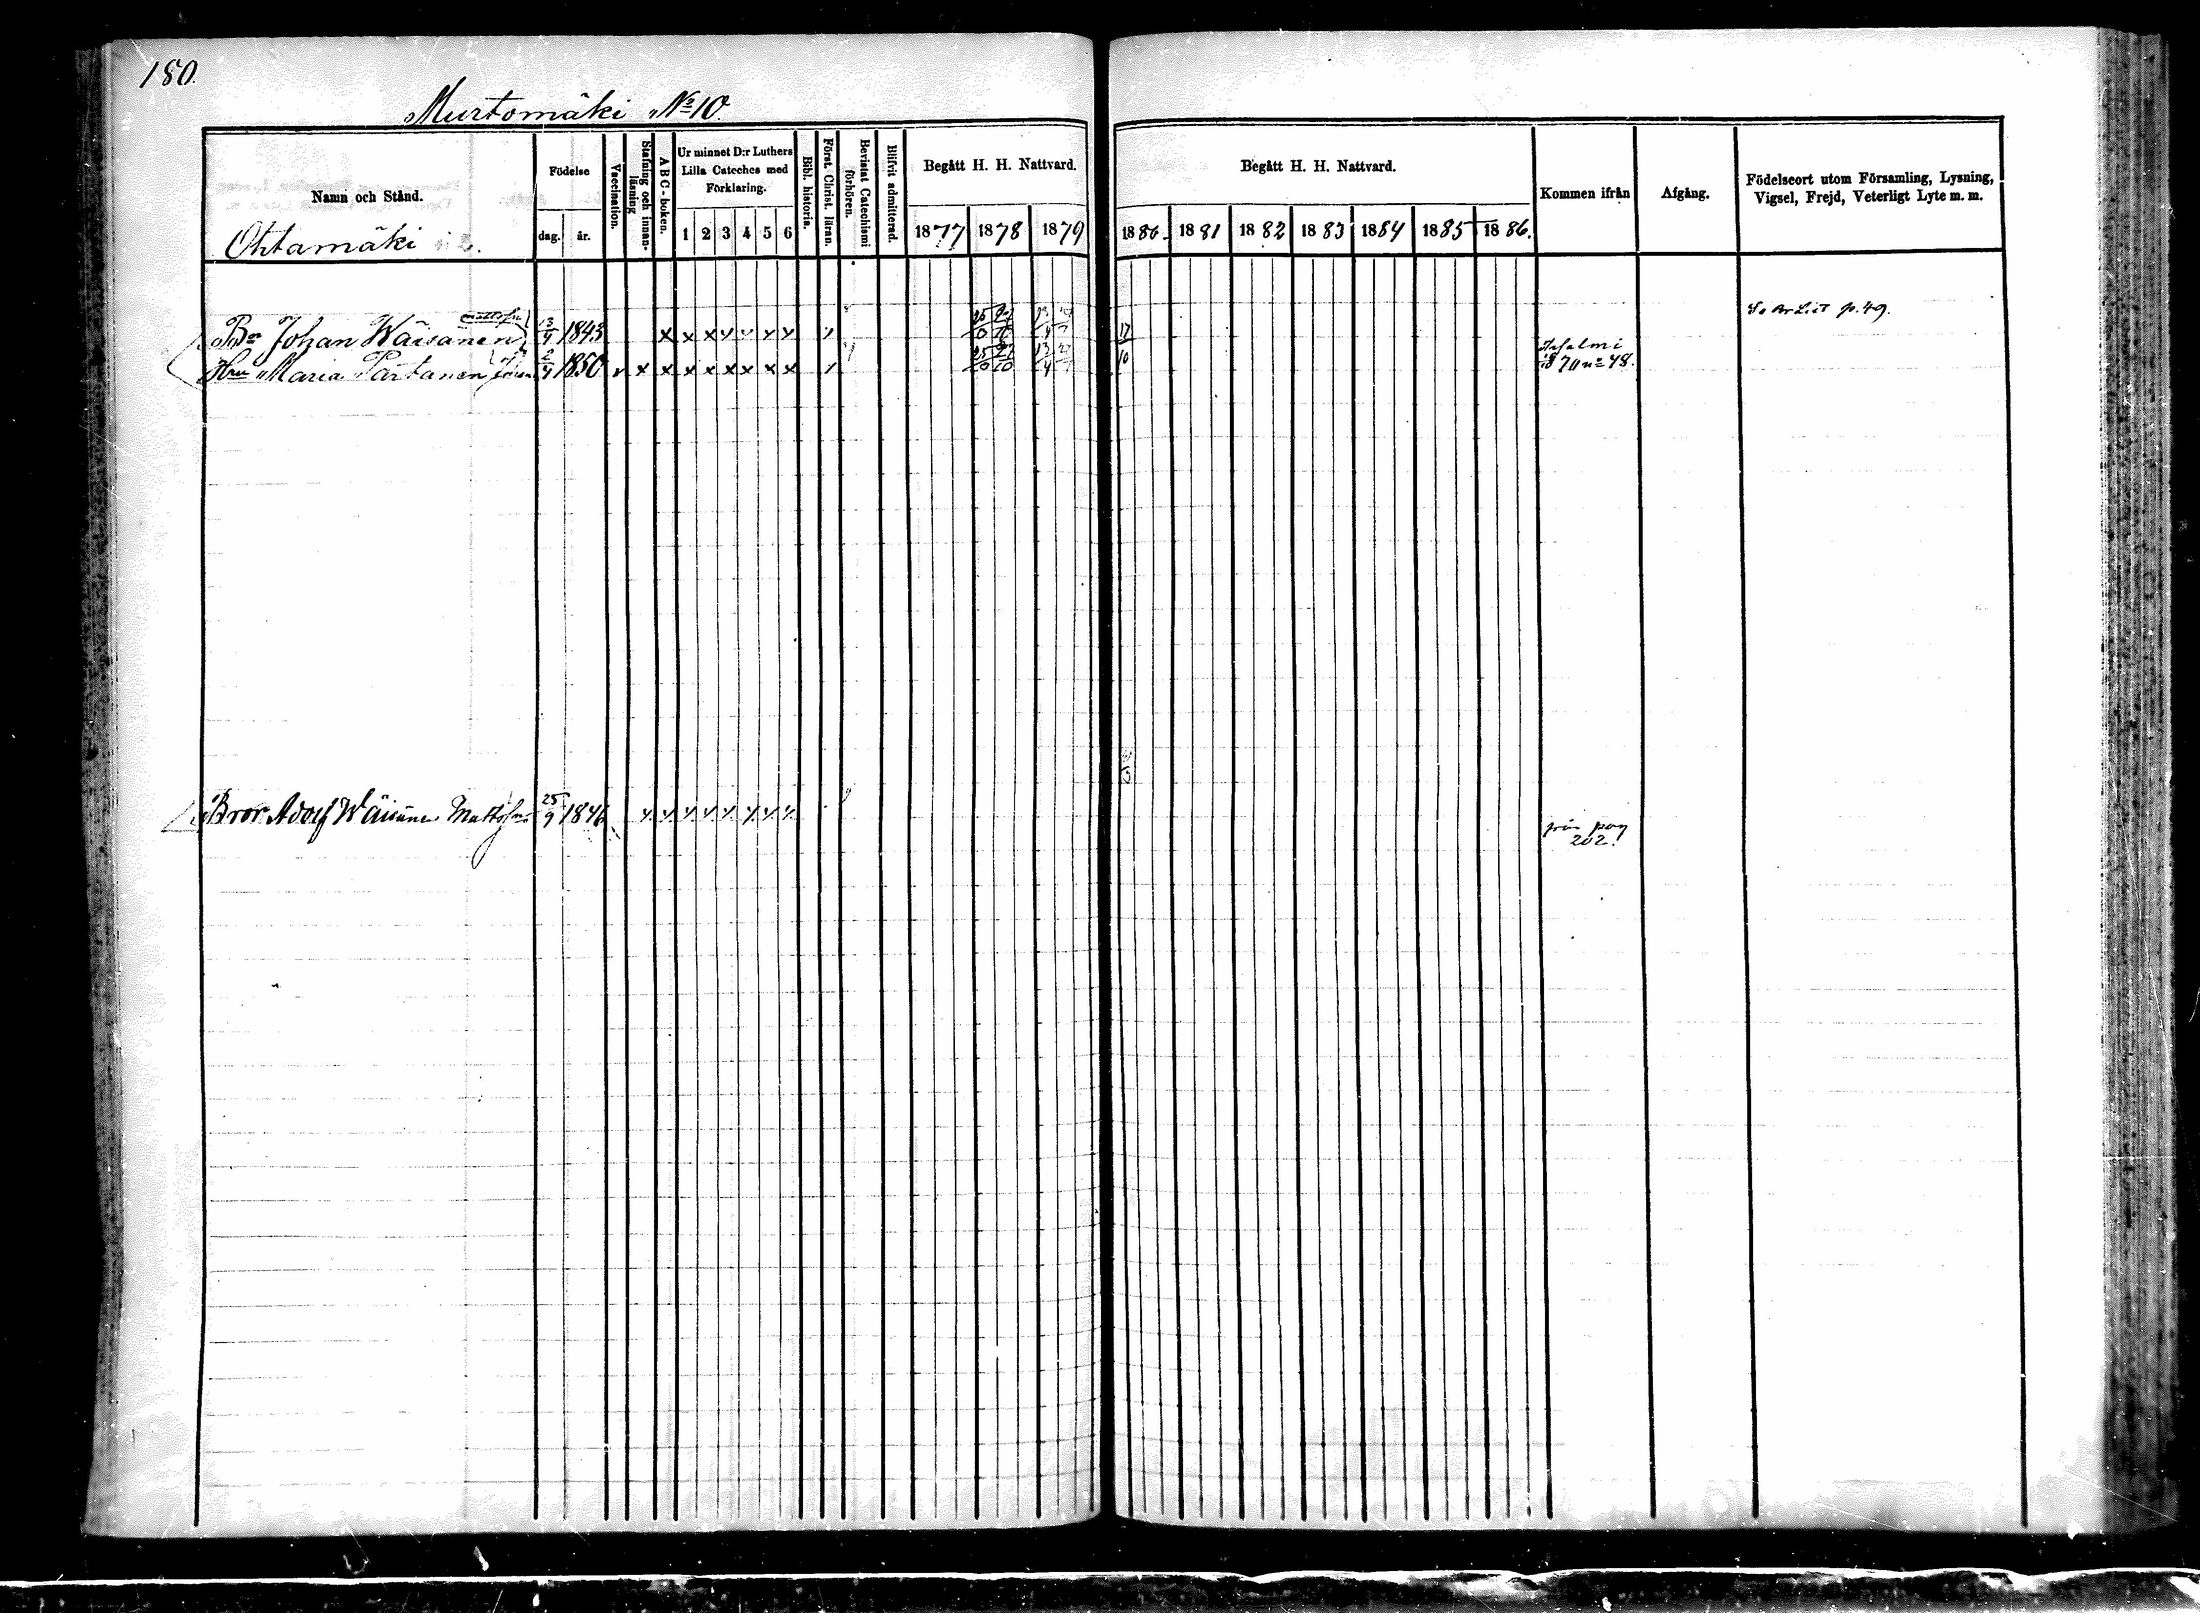 180.
Murtomäki No 10.
Namn och Stånd.
Ohtamäki
Födelse
dag.
år.
Vaccination.
Stafning och innan-läsning
ABC-boken.
Ur minnet D:r Luthers Lilla Cateches med Förklaring.
1 2 3 4 5 6
Bibl. historia.
Först. Christ. läran.
Bevistat Catechismi förhören.
Blifvit admitterad.
Begått H. H. Nattvard.
1877 1878 1879
Begått H. H. Nattvard.
1880. 1881 1882 1883 1884 1885 1886.
Kommen ifrån
Afgång.
Födelseort utom Församling, Lysning, Vigsel, Frejd, Veterligt Lyte m. m.
p. 49.
Mattsson
Johan Wäisänen 13/4 1843 x x x x x x x
17/10
Hru Maria Partanen 2/4 1850 v x x x x x x x x
Idesalmi
1870 no 48.
Bror Adolf Wäisänen Mattsson 25/9 1846 x x x x x x x x
från pag
202.